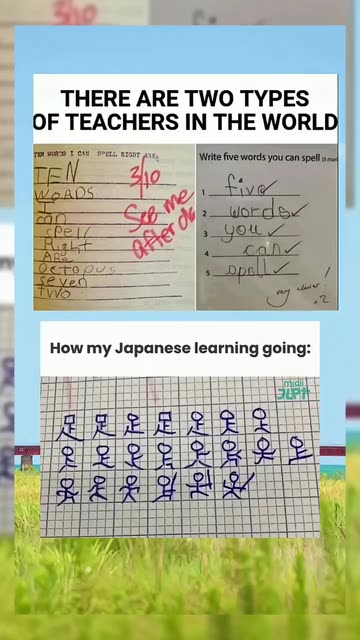 THERE ARE TWO TYPES
OF TEACHERS IN THE WORLD
TEN WORDS I CAN SPELL RIGHT ARE:
TEN
WORDS
I
can
spell
Right
Are
octopus
seven
TWO
3/10
See me
after
Write five words you can spell
1 five
2 words
3 you
4 can
5 spell
very clever !
+2
How my Japanese learning going:
midii
JLPT
足